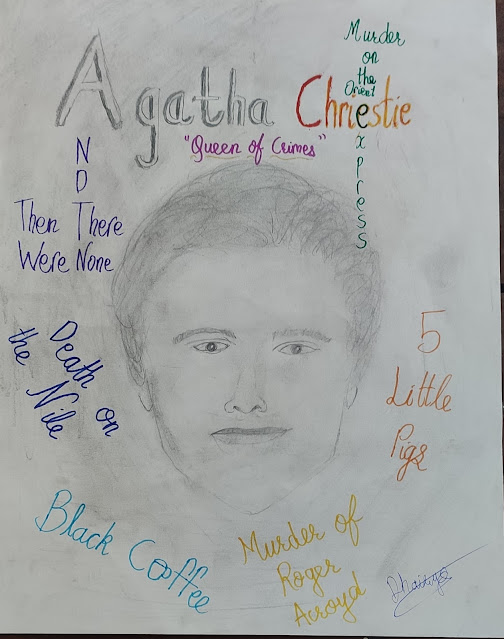 Agatha Chriestie
"Queen of Crimes"
Murder
on
the
Orient
express
ND
Then There
Were None
Death on
the Nile
5
Little
Pigs
Black Coffee
Murder of
Roger
Acroyd